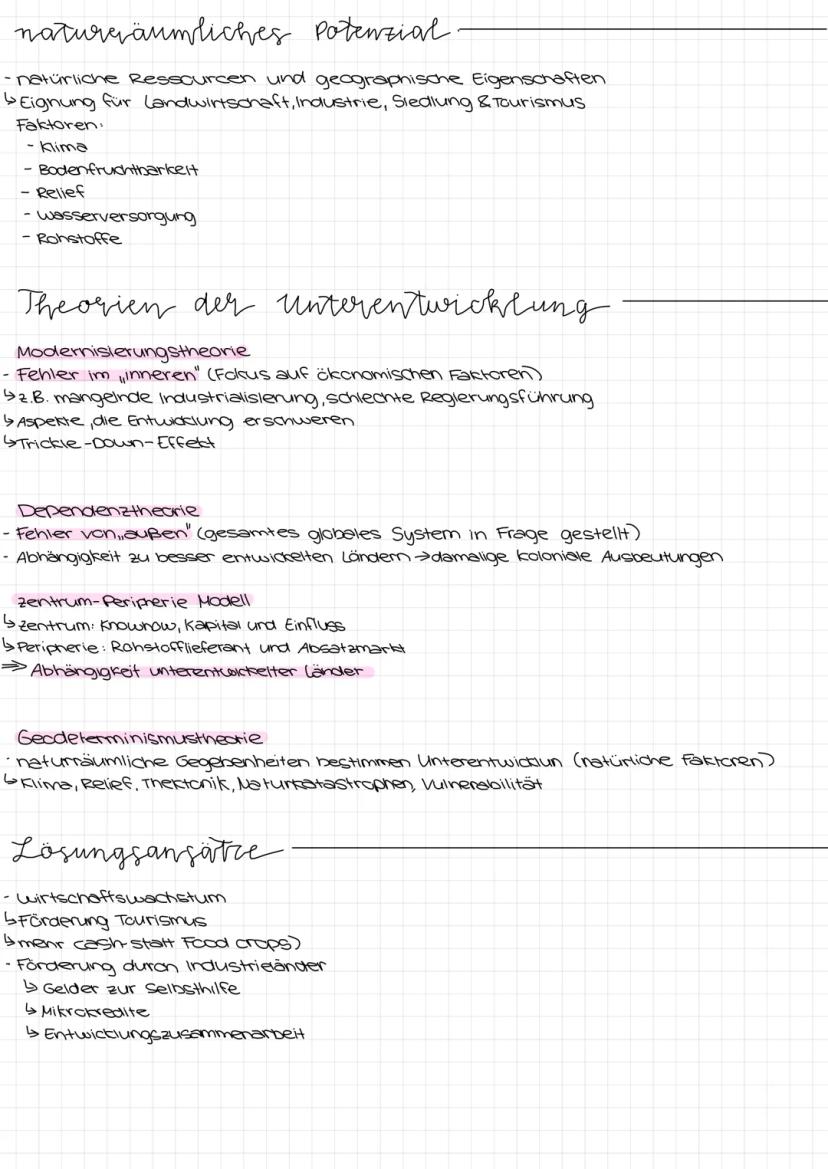 naturräumliches Potenzial
- natürliche Ressourcen und geographische Eigenschaften
↳ Eignung für Landwirtschaft, Industrie, Siedlung & Tourismus
Faktoren:
- Klima
- Bodenfruchtbarkeit
- Relief
- Wasserversorgung
- Rohstoffe
Theorien der Unterentwicklung
Modernisierungstheorie
- Fehler im „inneren" (Fokus auf ökonomischen Faktoren)
↳ z.B. mangelnde Industrialisierung, schlechte Regierungsführung
↳ Aspekte, die Entwicklung erschweren
↳ Trickle-Down-Effekt
Dependenztheorie
- Fehler von „außen" (gesamtes globales System in Frage gestellt)
- Abhängigkeit zu besser entwickelten Ländern → damalige koloniale Ausbeutungen
Zentrum-Peripherie Modell
↳ Zentrum: Knowhow, Kapital und Einfluss
↳ Peripherie: Rohstofflieferant und Absatzmarkt
⇒ Abhängigkeit unterentwickelter Länder
Geodeterminismustheorie
· naturräumliche Gegebenheiten bestimmen Unterentwicklun (natürliche Faktoren)
↳ Klima, Relief, Thektonik, Naturkatastrophen, Vulnerabilität
Lösungsansätze
- Wirtschaftswachstum
↳ Förderung Tourismus
↳ mehr cash- statt Food crops)
- Förderung durch Industrieländer
↳ Gelder zur Selbsthilfe
↳ Mikrokredite
↳ Entwicklungszusammenarbeit